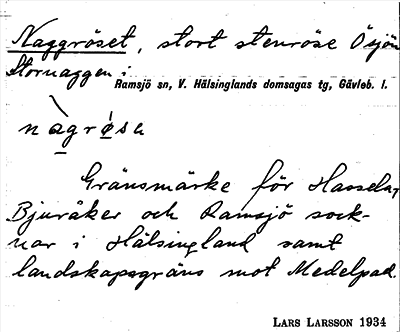 Naggröset, stort stenröse Ö sjön
Stornaggen i
Ramsjö sn, V. Hälsinglands domsagas tg, Gävleb. l.
nàgrø̀sə
Gränsmärke för Hassela,
Bjuråker och Ramsjö sock-
nar i Hälsingland samt
landskapsgräns mot Medelpad.
LARS LARSSON 1934